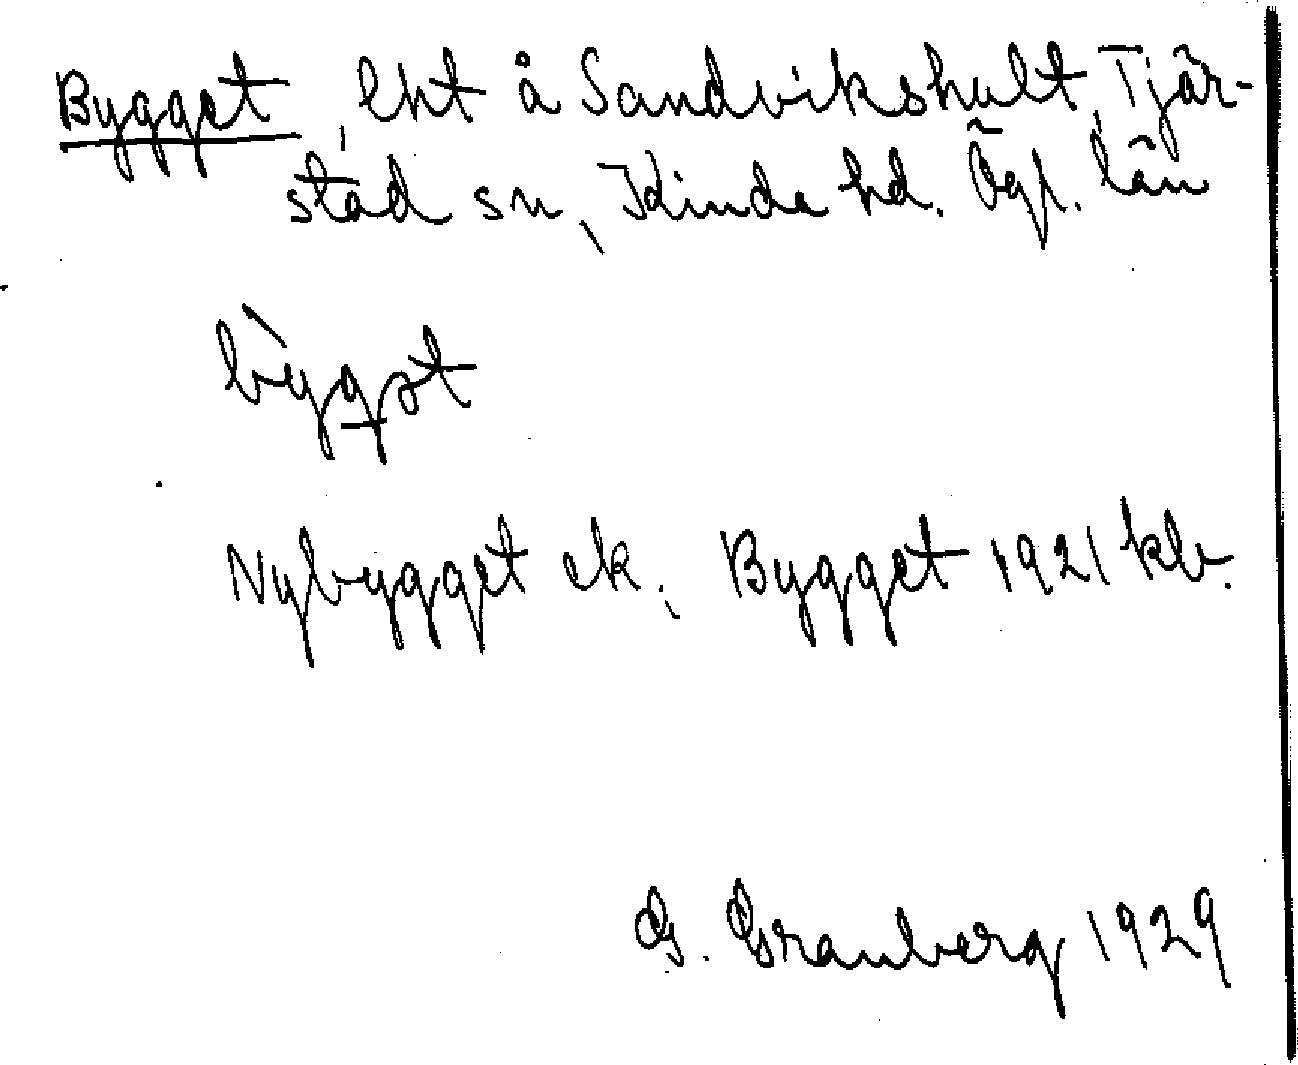 Bygget, lht å Sandvikshult, Tjär-
stad sn, Kinda hd. Ögl. län
Nybygget ek., Bygget 1921 klv.
G. Granberg 1929